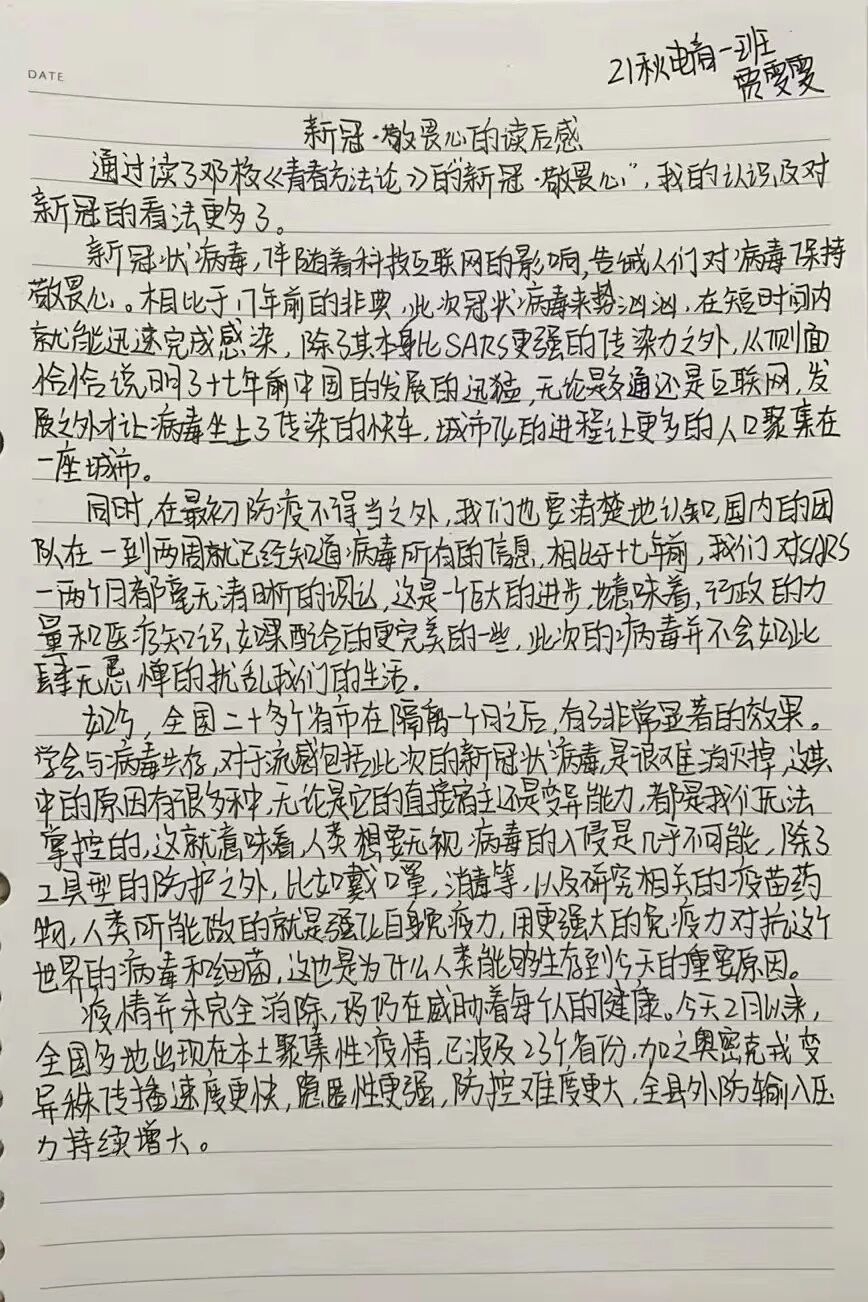 DATE
21秋电商一班
贾雯雯
新冠·敬畏心的读后感
通过读了邓榕《青春方法论》的"新冠·敬畏心",我的认识及对
新冠的看法更多了。
新冠状病毒,伴随着科技互联网的影响,告诫人们对病毒保持
敬畏心。相比于17年前的非典,此次冠状病毒来势汹汹,在短时间内
就能迅速完成感染,除了其本身比SARS更强的传染力之外,从侧面
恰恰说明了十七年前中国的发展的迅猛,无论是交通还是互联网,发
展之外才让病毒坐上了传染的快车,城市化的进程让更多的人口聚集在
一座城市。
同时,在最初防疫不得当之外,我们也要清楚地认知,国内的团
队在一到两周就已经知道病毒所有的信息,相比于十七年前,我们对SARS
一两个月都毫无清晰的认知,这是一个巨大的进步,也意味着,行政的力
量和医疗知识,如果配合的更完美的一些,此次的病毒并不会如此
肆无忌惮的扰乱我们的生活。
如今,全国二十多个省市在隔离一个月之后,有了非常显著的效果。
学会与病毒共存,对于流感包括此次的新冠状病毒,是很难消灭掉,这其
中的原因有很多种,无论是它的直接宿主还是变异能力,都是我们无法
掌控的,这就意味着,人类想要无视病毒的入侵是几乎不可能,除了
工具型的防护之外,比如戴口罩,消毒等,以及研究相关的疫苗药
物,人类所能做的就是强化自身免疫力,用更强大的免疫力对抗这个
世界的病毒和细菌,这也是为什么人类能够生存到今天的重要原因。
疫情并未完全消除,仍在威胁着每个人的健康。今天2月以来,
全国多地出现在本土聚集性疫情,已波及23个省份,加之奥密克戎变
异株传播速度更快,隐匿性更强,防控难度更大,全县外防输入压
力持续增大。